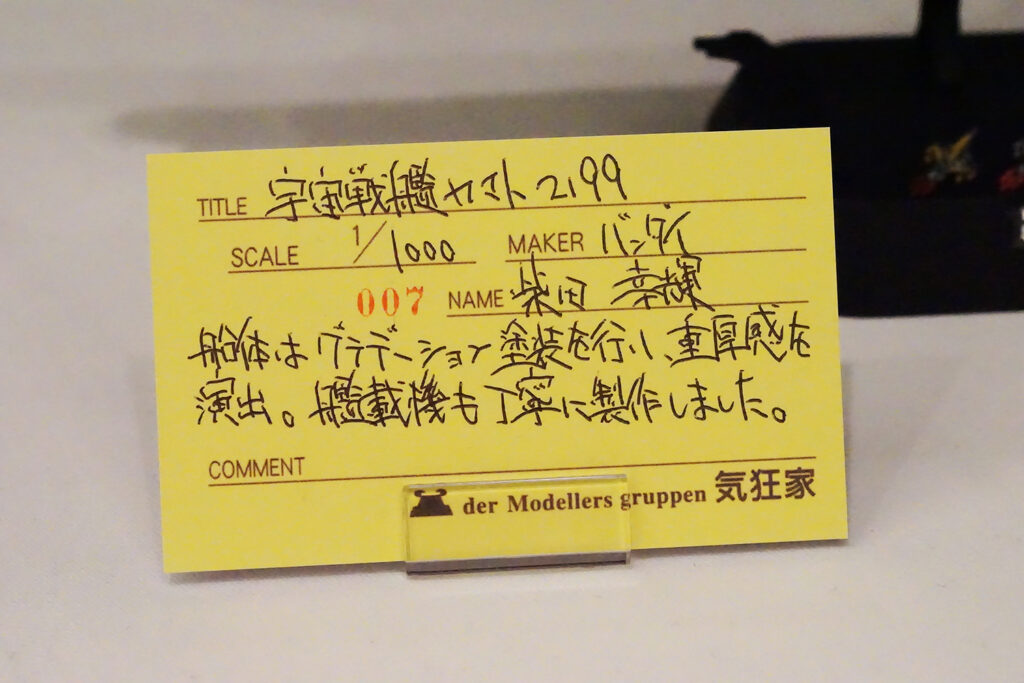 TITLE 宇宙戦艦ヤマト2199
SCALE 1/1000 MAKER バンダイ
007 NAME 柴田 幸輝
船体はグラデーション塗装を行い、重厚感を
演出。艦載機も丁寧に製作しました。
COMMENT
der Modellers gruppen 気狂家